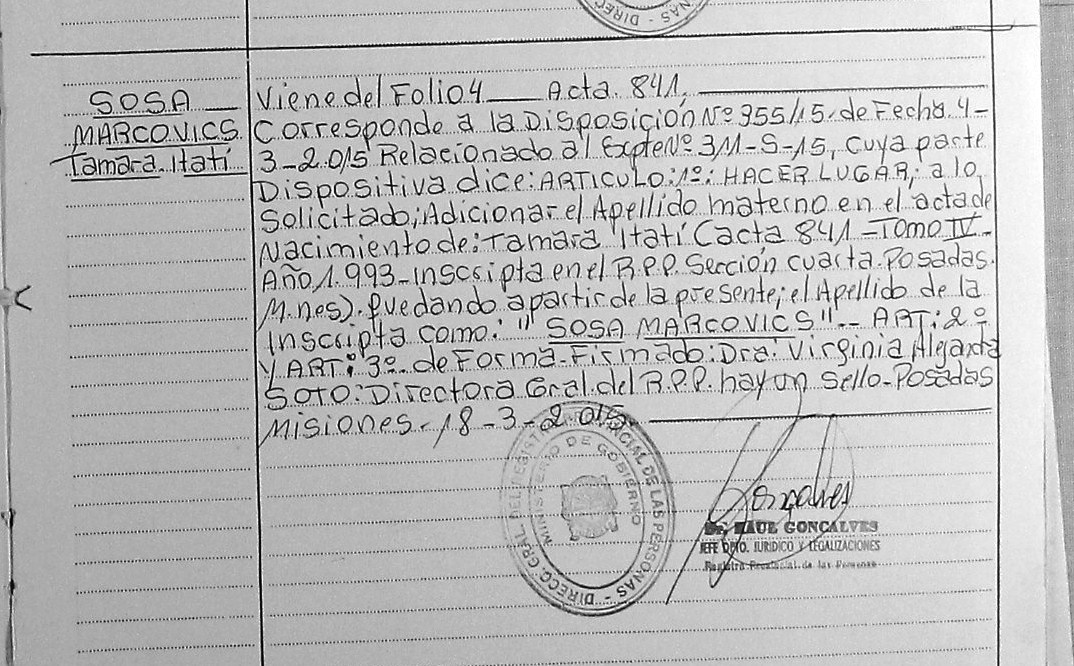 DIREC - SAN
SOSA
MARCOVICS
Tamara. Itatí
Viene del Folio 4 Acta. 841.
Corresponde a la Disposición Nº 355/15. de Fecha. 4-
3-2.015 Relacionado al Expte Nº 311-S-15, cuya parte
Dispositiva dice: ARTICULO: 1º: HACER LUGAR; a lo
Solicitado; Adicionar el Apellido materno en el acta de
Nacimiento de: Tamara Itatí (acta 841 - Tomo IV -
Año 1.993 - Inscripta en el R.P.P. Sección cuarta. Posadas.
M.nes). Quedando a partir de la presente; el Apellido de la
Inscripta como: " SOSA MARCOVICS". - ART: 2º
y ART: 3º. de Forma - Firmado: Dra. Virginia Alejandra
SOTO: Directora Gral. del R.P.P. hay un sello - Posadas
Misiones - 18 - 3 - 2.015.
DIRECC. GRAL. DEL REGISTRO PROVINCIAL DE LAS PERSONAS
MINISTERIO DE GOBIERNO
Goncalves
Dr. RAUL GONCALVES
JEFE DPTO. JURIDICO Y LEGALIZACIONES
Registro Provincial de las Personas